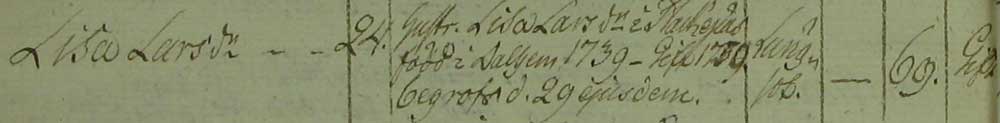 Lisa Larsdr - - 24. Hustr. Lisa Larsdr i
född i Dalhem 1739 - Gift 1759. Lung
begrofs d. 29 ejusdem. sot. — 69. Gift